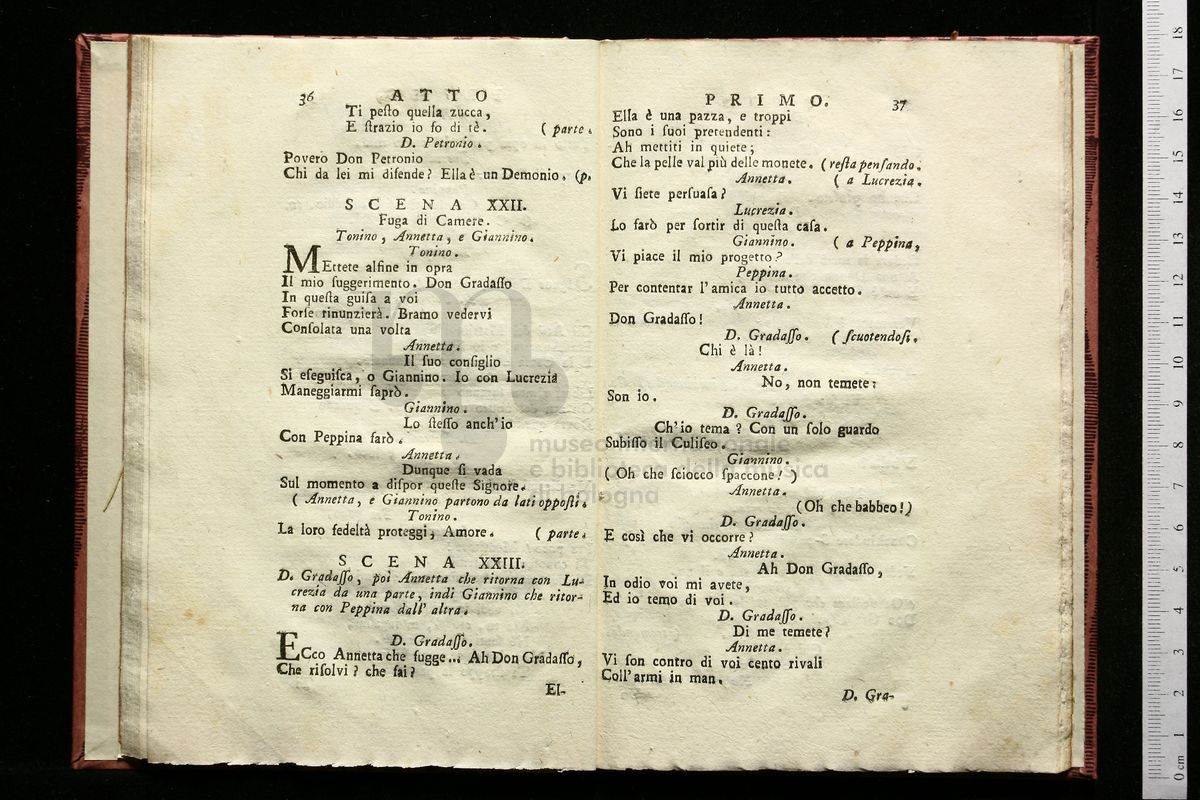 36 ATTO
Ti peſto quella zucca,
E ſtrazio io fo di tè. ( parte.
D. Petronio.
Povero Don Petronio
Chi da lei mi difende? Ella è un Demonio. (p.
SCENA XXII.
Fuga di Camere.
Tonino, Annetta, e Giannino.
Tonino.
MEttete alfine in opra
Il mio ſuggerimento. Don Gradaſſo
In queſta guiſa a voi
Forſe rinunzierà. Bramo vedervi
Conſolata una volta
Annetta.
Il ſuo conſiglio
Si eſeguiſca, o Giannino. Io con Lucrezia
Maneggiarmi ſaprò.
Giannino.
Lo ſteſſo anch'io
Con Peppina farò.
Annetta.
Dunque ſi vada
Sul momento a diſpor queſte Signore.
( Annetta, e Giannino partono da lati oppoſti.
Tonino.
La loro fedeltà proteggi, Amore. ( parte.
SCENA XXIII.
D. Gradaſſo, poi Annetta che ritorna con Lu-
crezia da una parte, indi Giannino che ritor-
na con Peppina dall' altra.
D. Gradaſſo.
ECco Annetta che fugge... Ah Don Gradaſſo,
Che riſolvi? che fai?
El-
PRIMO. 37
Ella è una pazza, e troppi
Sono i ſuoi pretendenti:
Ah mettiti in quiete;
Che la pelle val più delle monete. (reſta penſando.
Annetta. ( a Lucrezia.
Vi ſiete perſuaſa?
Lucrezia.
Lo farò per ſortir di queſta caſa.
Giannino. ( a Peppina,
Vi piace il mio progetto?
Peppina.
Per contentar l'amica io tutto accetto.
Annetta.
Don Gradaſſo!
D. Gradaſſo. ( ſcuotendoſi.
Chi è là!
Annetta.
No, non temete:
Son io.
D. Gradaſſo.
Ch'io tema? Con un ſolo guardo
Subiſſo il Culiſeo.
Giannino.
( Oh che ſciocco ſpaccone! )
Annetta.
(Oh che babbeo!)
D. Gradaſſo.
E così che vi occorre?
Annetta.
Ah Don Gradaſſo,
In odio voi mi avete,
Ed io temo di voi.
D. Gradaſſo.
Di me temete?
Annetta.
Vi ſon contro di voi cento rivali
Coll'armi in man.
D. Gra-
museo internazionale
e biblioteca della musica
di bologna
0 cm 1 2 3 4 5 6 7 8 9 10 11 12 13 14 15 16 17 18